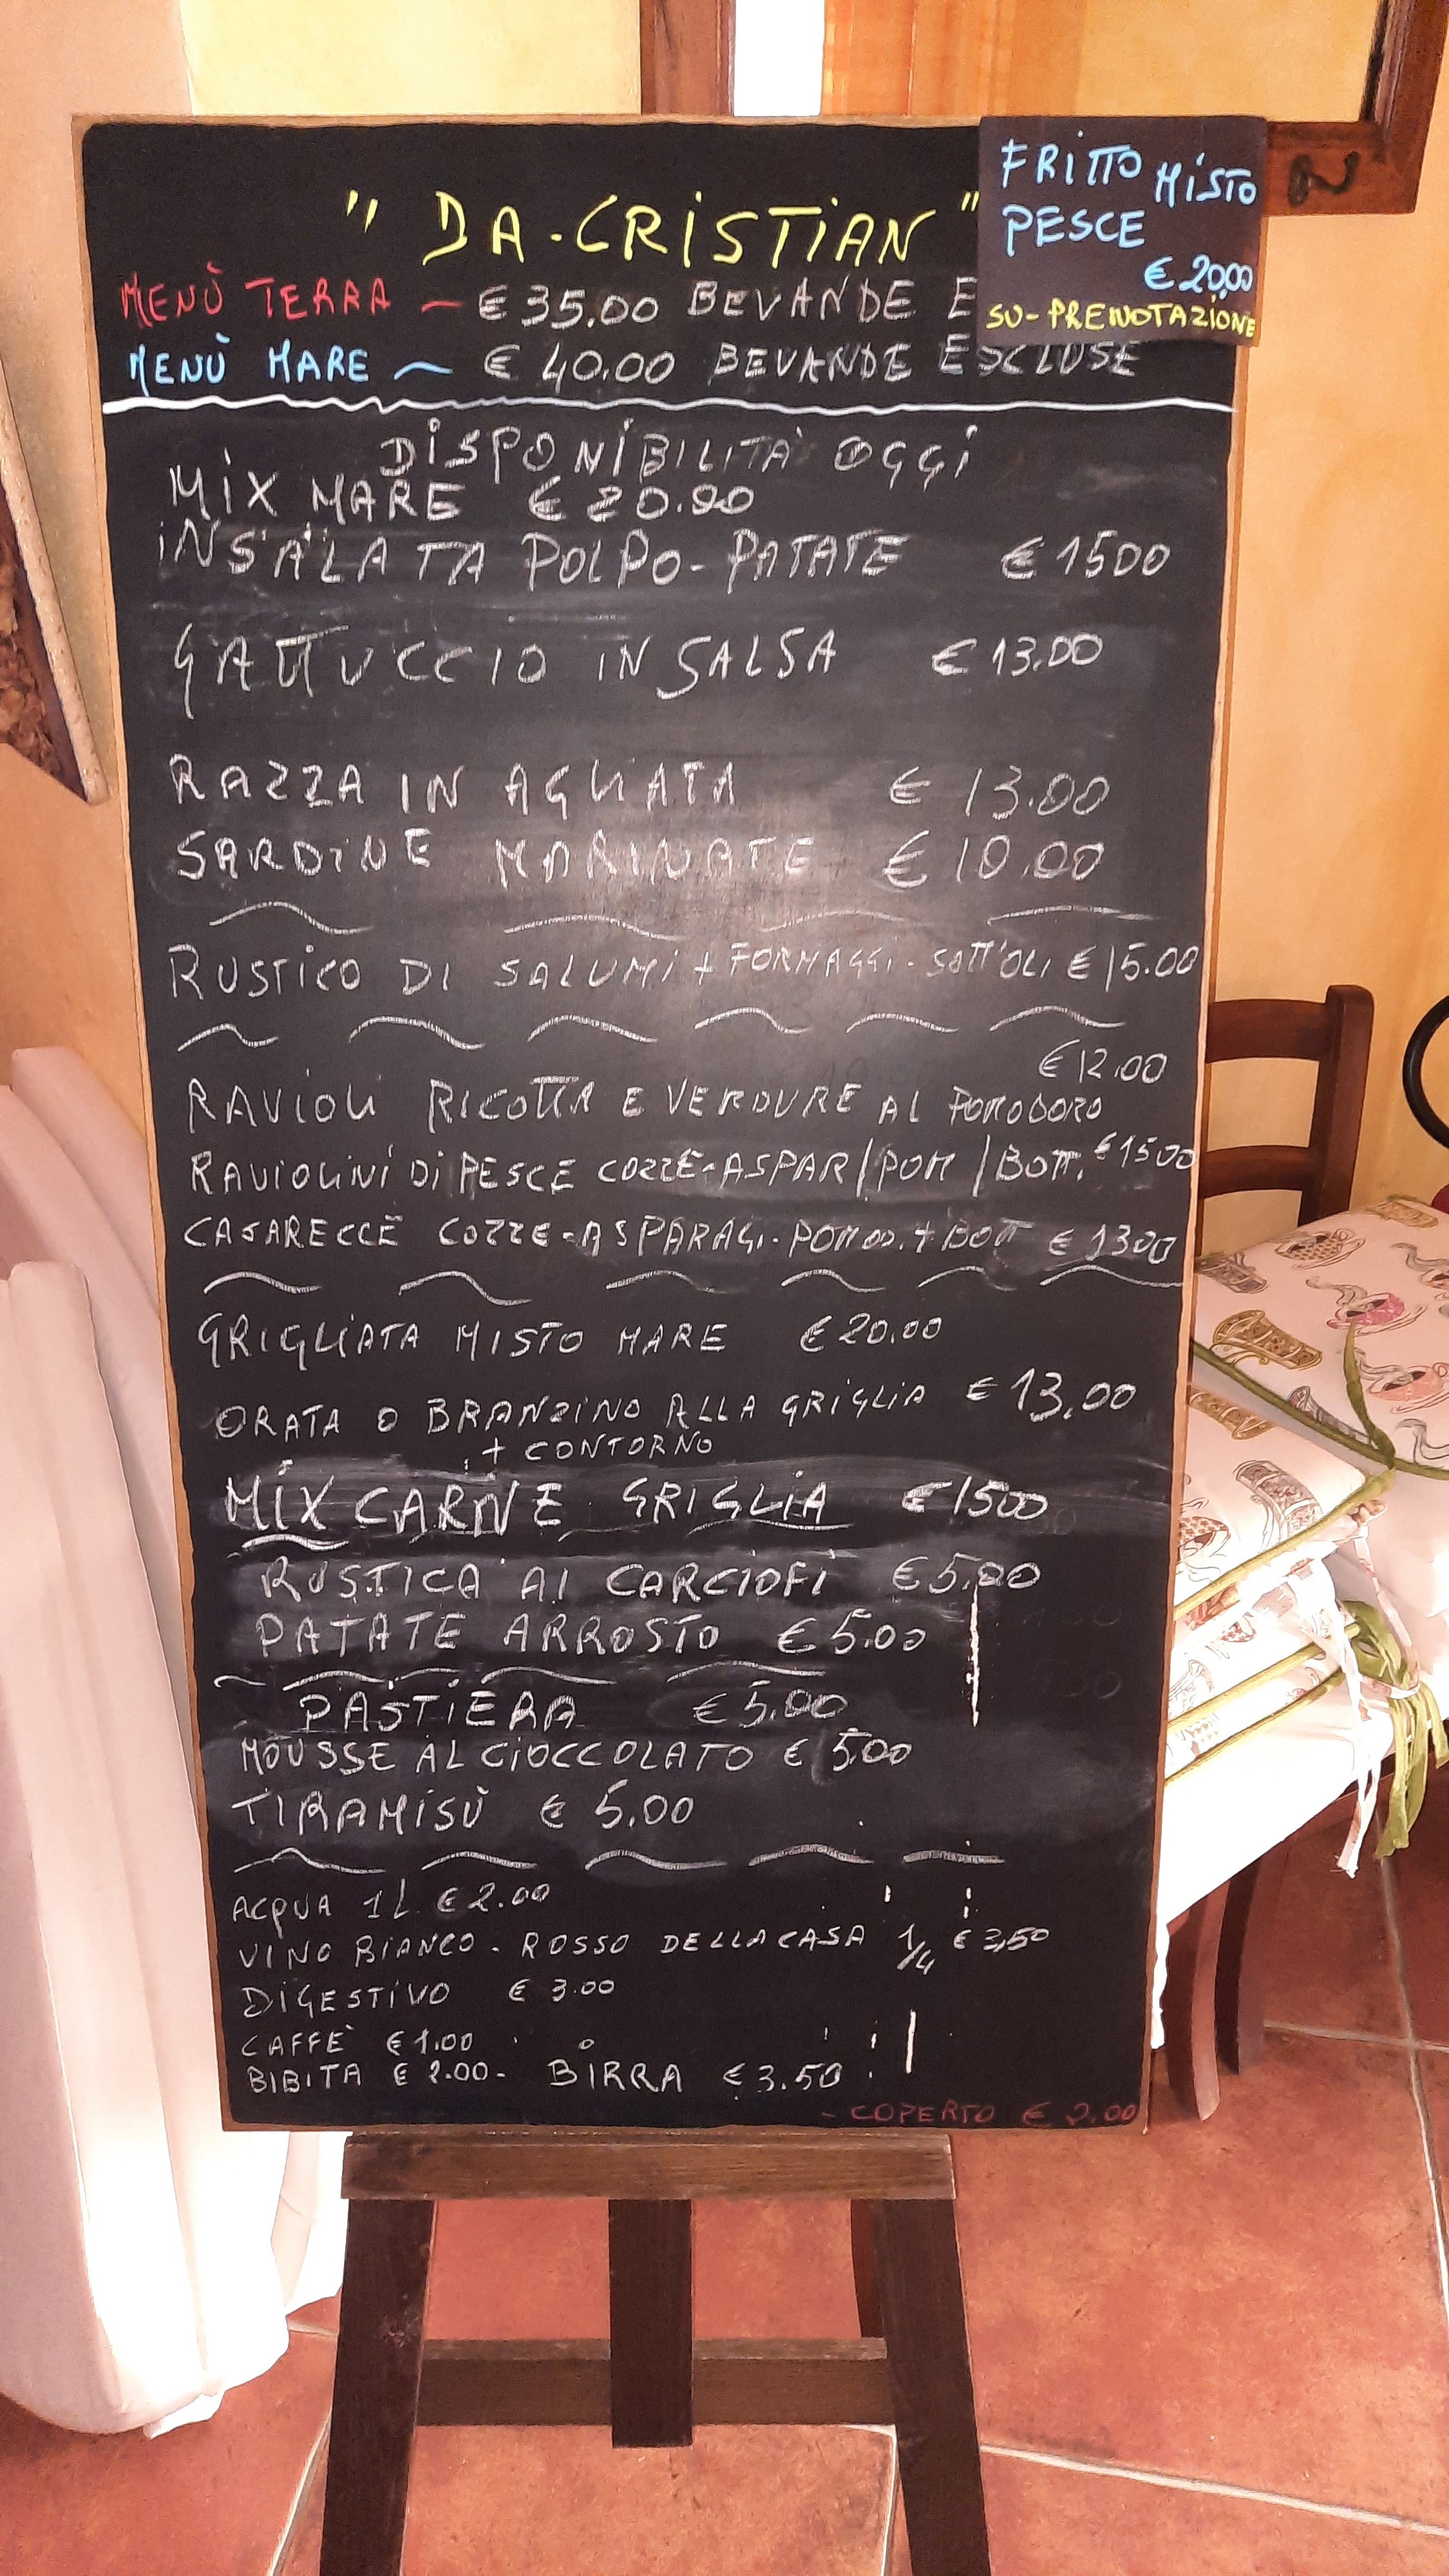 " DA-CRISTIAN "
FRITTO MISTO
PESCE
€ 20,00
SU-PRENOTAZIONE
MENÙ TERRA - € 35.00 BEVANDE E
MENÙ MARE ~ € 40.00 BEVANDE ESCLUSE
DISPONIBILITÀ OGGI
MIX MARE € 20.00
INSALATA POLPO-PATATE € 1500
GATTUCCIO IN SALSA € 13.00
RAZZA IN AGLIATA € 13.00
SARDINE MARINATE € 10.00
RUSTICO DI SALUMI + FORMAGGI - SOTT'OLI € 15.00
€ 12.00
RAVIOLI RICOTTA E VERDURE AL POMODORO
RAVIOLINI DI PESCE COZZE-ASPAR/POM/BOTT. € 1500
CASARECCE COZZE-ASPARAGI-POMOD.+BOTT € 1300
GRIGLIATA MISTO MARE € 20.00
ORATA O BRANZINO ALLA GRIGLIA € 13,00
+ CONTORNO
MIX CARNE GRIGLIA € 1500
RUSTICA AI CARCIOFI € 5,00
PATATE ARROSTO € 5.00
PASTIERA € 5.00
MOUSSE AL CIOCCOLATO € 5.00
TIRAMISÙ € 5.00
ACQUA 1L € 2.00
VINO BIANCO - ROSSO DELLA CASA 1/4 € 3,50
DIGESTIVO € 3.00
CAFFÈ € 1.00
BIBITA € 2.00 - BIRRA € 3.50
- COPERTO € 2.00